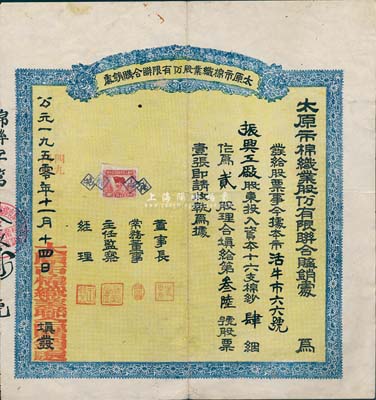 太原市棉織業股份有限聯合購銷處
太原市棉織業股份有限聯合購銷處 為
發給股票事今據本市活牛市六六號
振興工廠股東投入資本十六支棉紗肆綑
作為貳股理合填給第叁陸號股票
壹張即請收執為據
董事長
常務董事
主任監察
經理
公元一九五零年十一月十四日 填發